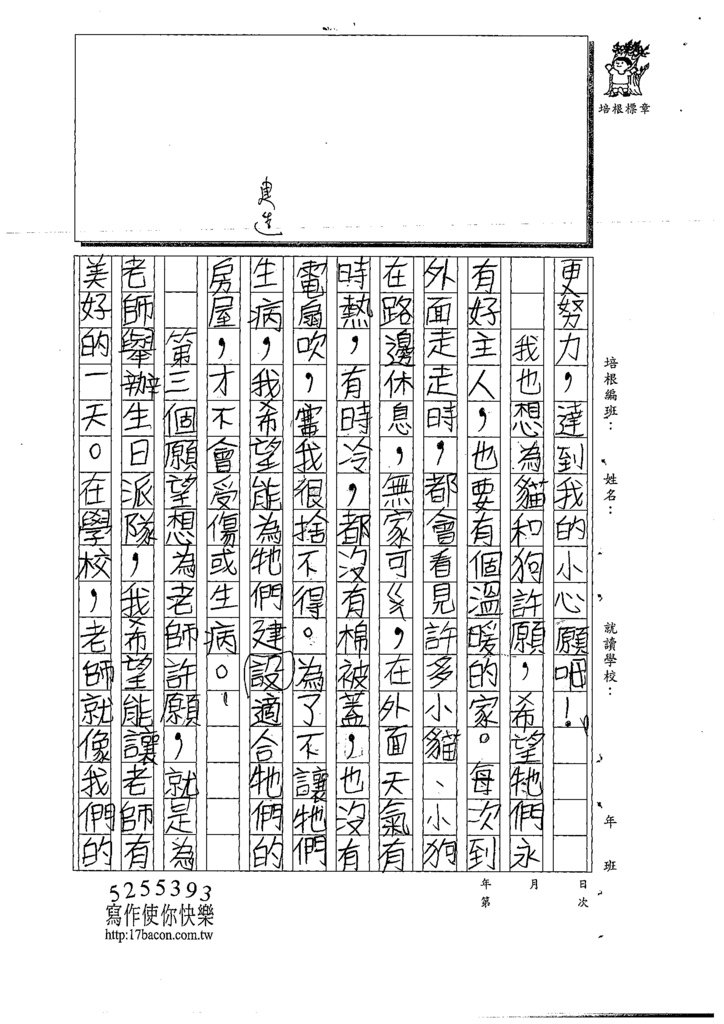 培根標章
建造
培根編班： 姓名： 就讀學校： 年 班
更努力，達到我的小心願吧！
我也想為貓和狗許願，希望牠們永
有好主人，也要有個溫暖的家。每次到
外面走走時，都會看見許多小貓、小狗
在路邊休息，無家可，在外面天氣有
時熱，有時冷，都沒有棉被蓋，也沒有
電扇吹，害我很捨不得。為了不讓牠們
生病，我希望能為牠們建設適合牠們的
房屋，才不會受傷或生病。
第三個願望想為老師許願，就是為
老師舉辦生日派隊，我希望能讓老師有
美好的一天。在學校，老師就像我們的
年 月 日
第 次
5255393
寫作使你快樂
http:17bacon.com.tw